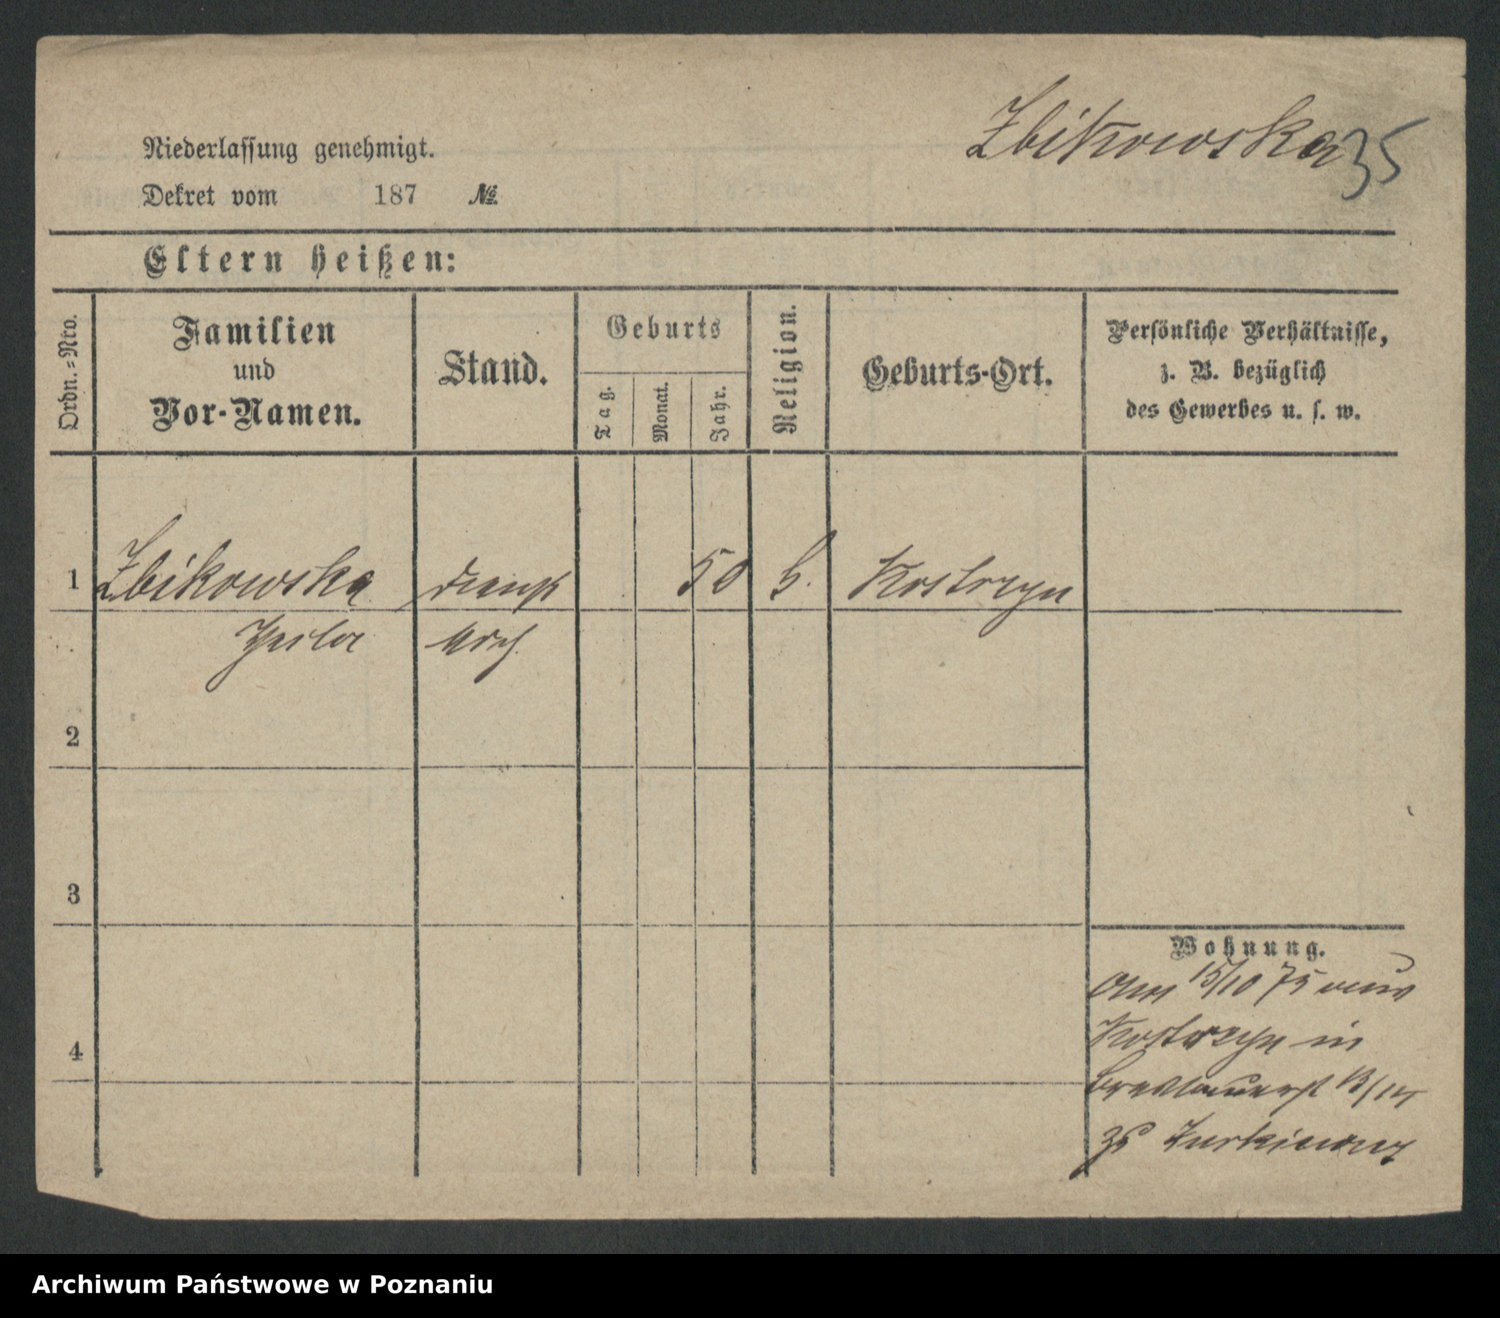 Zbikowska 35
Niederlassung genehmigt.
Dekret vom 187 №
Eltern heißen:
Ordn.-Nro.
Familien
und
Vor-Namen.
Stand.
Geburts
Tag.
Monat.
Jahr.
Religion.
Geburts-Ort.
Persönliche Verhältnisse,
z. B. bezüglich
des Gewerbes u. s. w.
1 Zbikowska 50 Kostrzyn
2
3
Wohnung.
15/10 75 aus
Kostrzyn in
4
Breslauerst 13/14